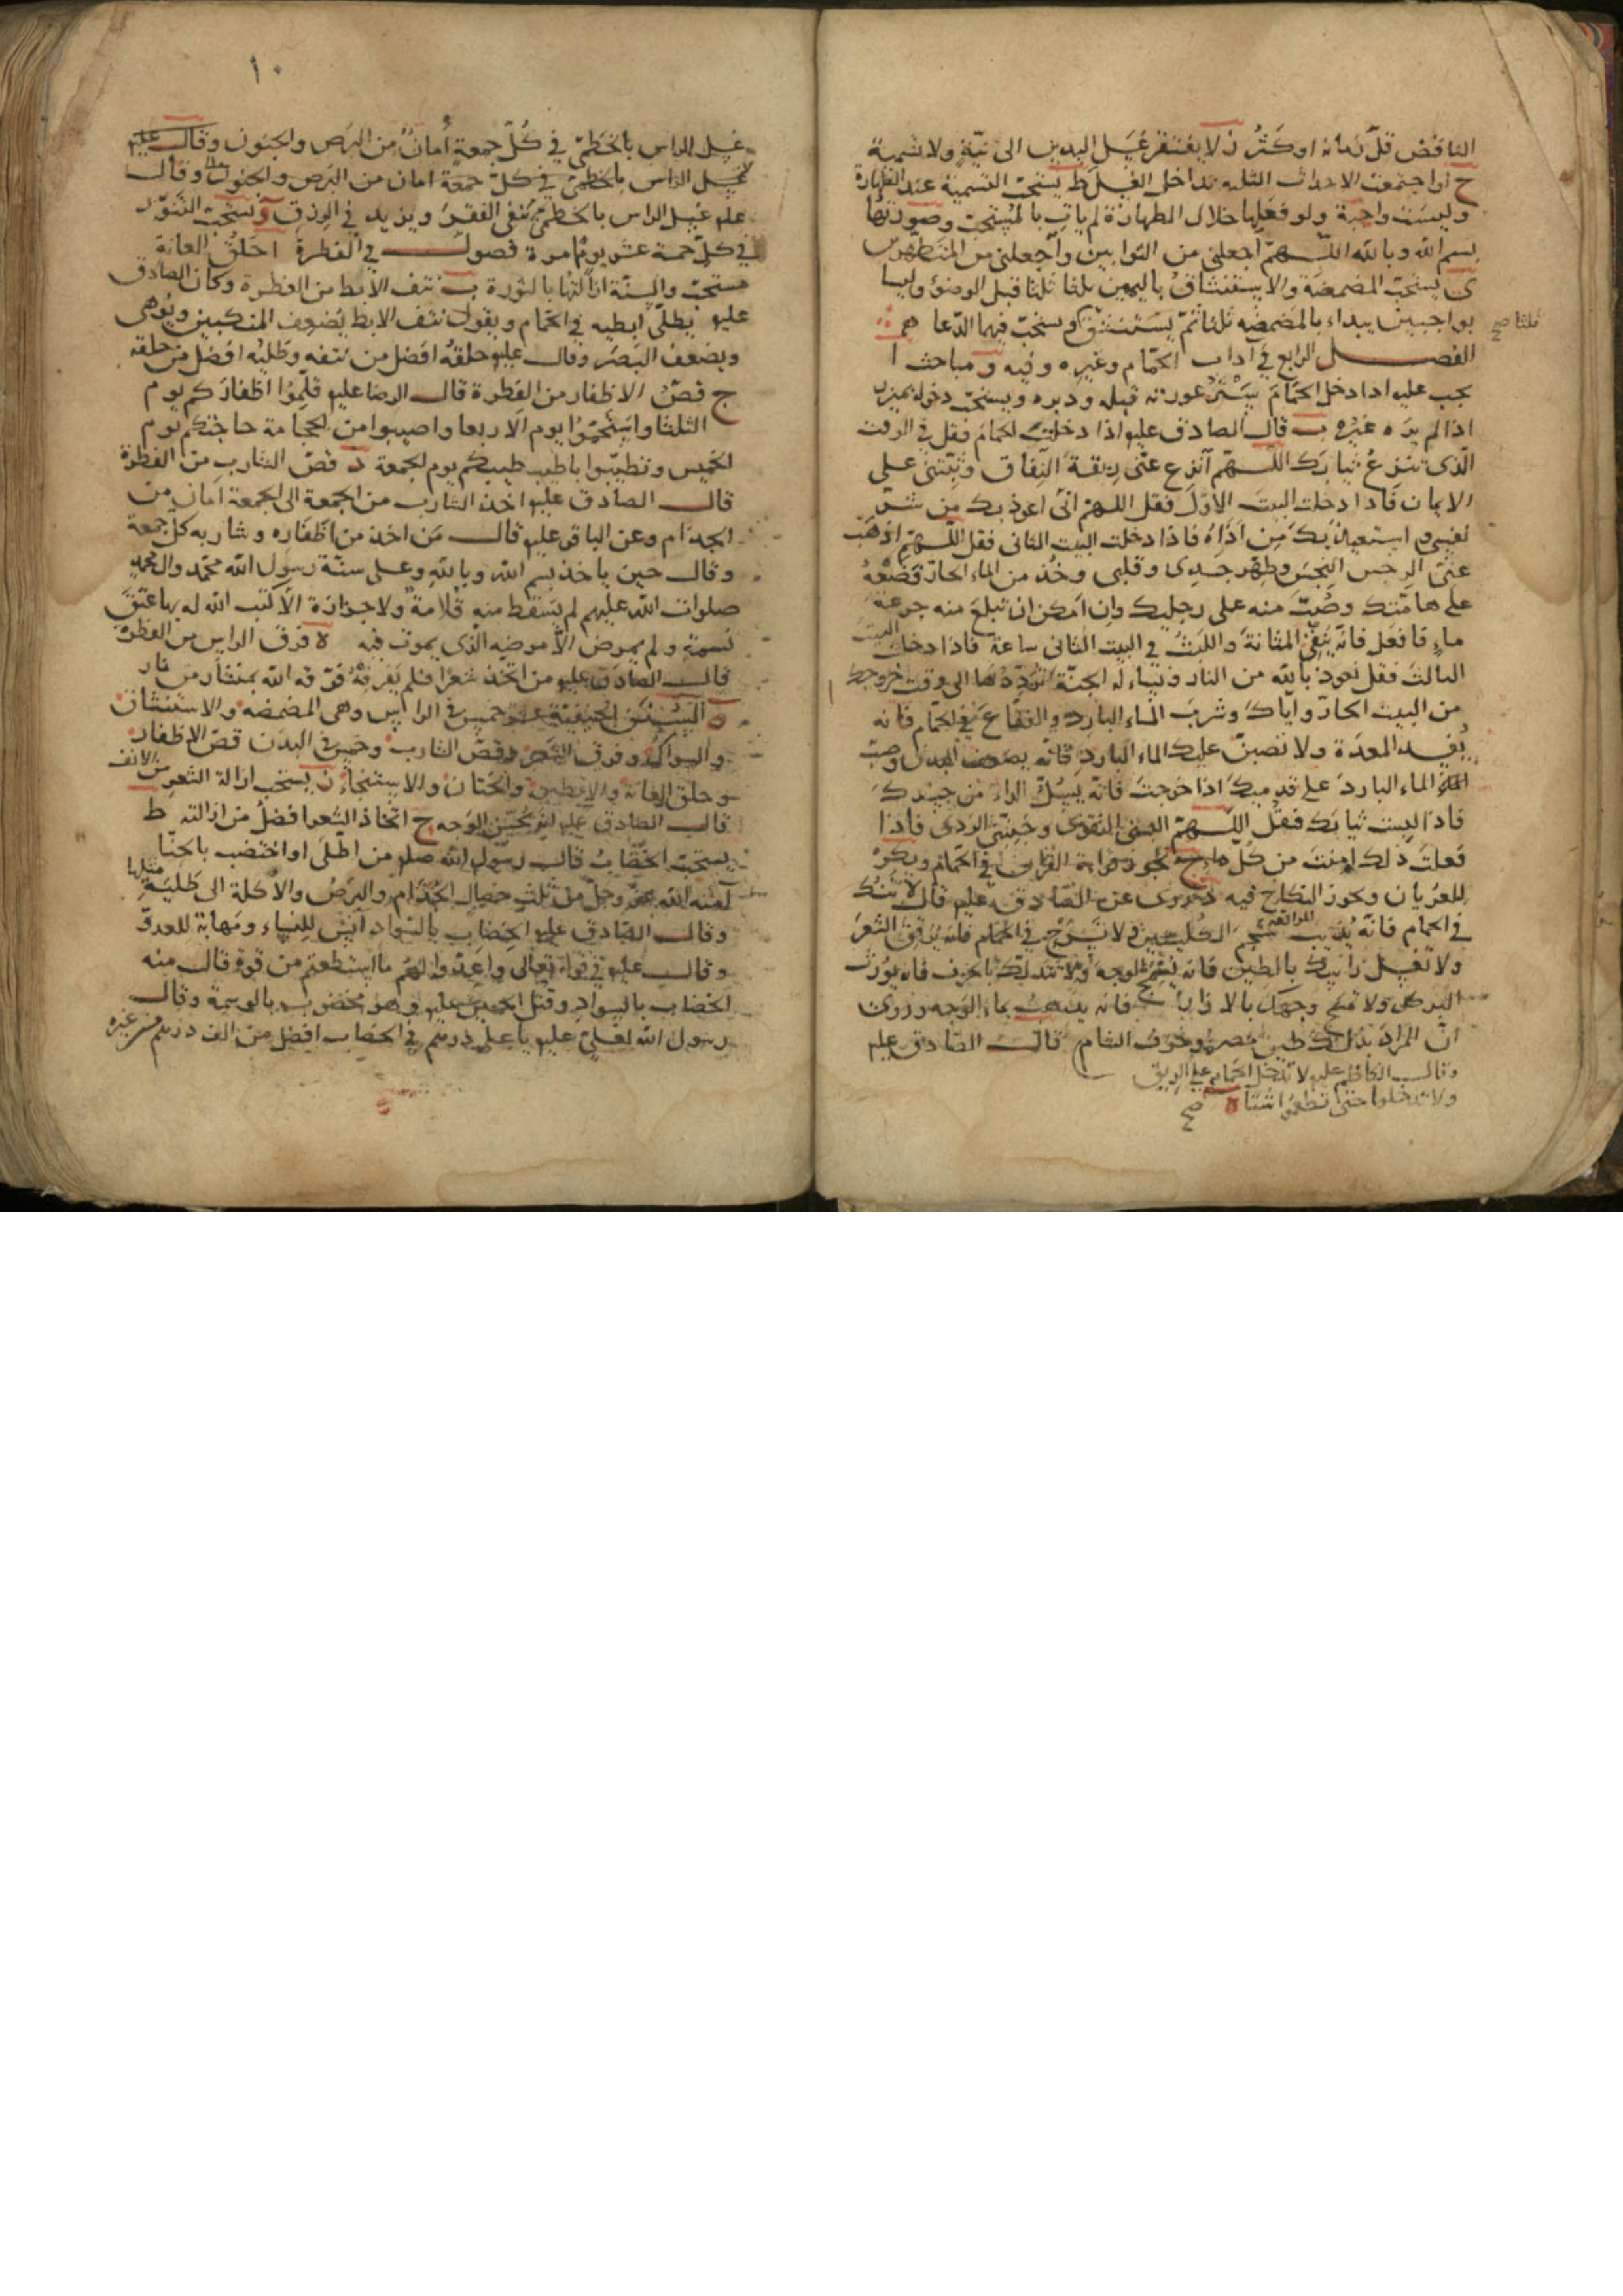 الناقض قلّ زمانه او كثر ز لا يفتقر غسل اليدين الى نيّة ولا تسمية
ح لو اجتمعت الاحداث الثلثه تداخل الغسل ط يستحبّ التسمية عند الطهارة
وليست واجبة ولو فعلها خلال الطهارة لم يات بالمستحبّ وصورتها
بسم الله وبالله اللهمّ اجعلنى من التوابين واجعلنى من المتطهرين
ى يستحبّ المضمضة والاستنشاق باليمين ثلثا ثلثا قبل الوضوء وليسا
بواجبين يبداء بالمضمضه ثلثا ثمّ يستنشق ويستحبّ فيهما الدّعا
ثلثا صح
الفصل الرابع في اداب الحمّام وغيره وفيه مباحث ا
يجب عليه اذا دخل الحمّام ستر عورته قبله ودبره ويستحبّ دخوله بميزر
اذا لم يره غيره ب قال الصادق عليه اذا دخلت الحمام فقل في الوقت
الّذى تنزع ثيابك اللّهمّ انزع عنّى ربقة النّفاق وثبّتنى على
الايمان فاذا دخلت البيت الاوّل فقل اللهمّ انّى اعوذ بك من شرّ
نفسى واستعيذ بك من اذاه فاذا دخلت البيت الثانى فقل اللّهمّ اذهب
عنّى الرجس النجس وطهّر جسدى وقلبى وخذ من الماء الحارّ فضعه
على هامتك وصبّ منه على رجليك وان امكن ان تبلع منه جرعة
ماء فافعل فانّه ينقّى المثانة والبث في البيت الثانى ساعة فاذا دخلت البيت
الثالث فقل نعوذ بالله من النار ونسأله الجنّة تردّدها الى وقت خروجك
من البيت الحارّ وايّاك وشرب الماء البارد والفقاع في الحمّام فانه
يفسد المعدة ولا تصبنّ عليك الماء البارد فانّه يضعف البدن وصبّ
الماء البارد على قدميك اذا خرجت فانّه يسلّ الداء من جسدك
فاذا لبست ثيابك فقل اللّهمّ البسنى التقوى وجنّبنى الردى فاذا
فعلت ذلك امنت من كلّ داء ج يجوز قراءة القران في الحمّام ويكره
للعريان ويجوز النكاح فيه د روى عن الصّادق عليه قال لا تتّك
في الحمام فانّه يذيب شحم الكليتين ولا تسرّح في الحمّام فانّه يرقّق الشعر
ولا تغسل راسك بالطين فانه يسمّج الوجه ولا تتدلّك بالخزف فانه يورث
البرص ولا تمسح وجهك بالازار فانه يذهب بماء الوجه وروى
انّ المراد بذلك طين مصر وخزف الشام قال الصّادق عليه
وقال الكاظم عليه لا تدخل الحمّام على الريق
ولا تدخلوا حتى تطعموا شيئا ه صح
١٠
غسل الراس بالخطمى في كلّ جمعة امان من البرص والجنون وقال عليه
غسل الراس بالخطمى في كلّ جمعة امان من البرص والجنون وقال
عليه غسل الراس بالخطمى ينفى الفقر ويزيد في الرزق و يستحبّ التنوّر
في كلّ خمسة عشر يوما مرة فصول في الفطرة ا حلق العانة
مستحبّ والسنّة ازالتها بالنورة ب نتف الابط من الفطرة وكان الصادق
عليه يطلّى ابطيه في الحمّام ويقول نتف الابط يضعف المنكبين ويوهى
ويضعف البصر وقال عليه حلقه افضل من نتفه وطليه افضل من حلقه
ج قصّ الاظفار من الفطرة قال الرضا عليه قلّموا اظفاركم يوم
الثلثا واستحمّوا يوم الاربعا واصيبوا من الحجامة حاجتكم يوم
الخميس وتطيّبوا باطيب طيبكم يوم الجمعة د قصّ الشارب من الفطرة
قال الصادق عليه اخذ الشارب من الجمعة الى الجمعة امان من
الجذام وعن الباقر عليه قال من اخذ من اظفاره وشاربه كل جمعة
وقال حين ياخذ بسم الله وبالله وعلى سنّة رسول الله محمّد وال محمد
صلوات الله عليهم لم يسقط منه قلامة ولا جزازة الّا كتب الله له بها عتق
نسمة ولم يمرض الّا مرضه الذى يموت فيه ه فرق الراس من الفطرة
قال الصادق عليه من اتخذ شعرا فلم يفرقه فرّقه الله بمنشار من نار
و السنن الحنيفية عشر خمس في الراس وهى المضمضه والاستنشاق
والسواك وفرق الشعر وقصّ الشارب وخمس في البدن قصّ الاظفار
وحلق العانة والابطين والختان والاستنجاء ز يستحب ازالة الشعر من الانف
قال الصادق عليه انّه يحسّن الوجه ح اتّخاذ الشعر افضل من ازالته ط
يستحبّ الخضاب قال رسول الله صلى من اطّلى او اختضب بالحنّا
آمنه الله عزّ وجلّ من ثلث خصال الجذام والبرص والاكلة الى طلية مثلها
وقال الصّادق عليه الخضاب بالسّواد انس للنساء ومهابة للعدوّ
وقال عليه في قوله تعالى واعدّوا لهم ما استطعتم من قوة قال منه
الخضاب بالسواد وقتل الحسين عليه وهو مخضوب بالوسمة وقال
رسول الله لعلىّ عليه يا على درهم في الخضاب افضل من الف درهم في غيره